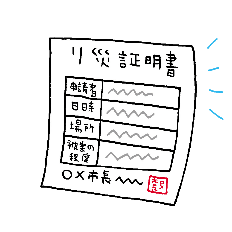 り災証明書
申請書
日時
場所
被害の
程度
〇×市長